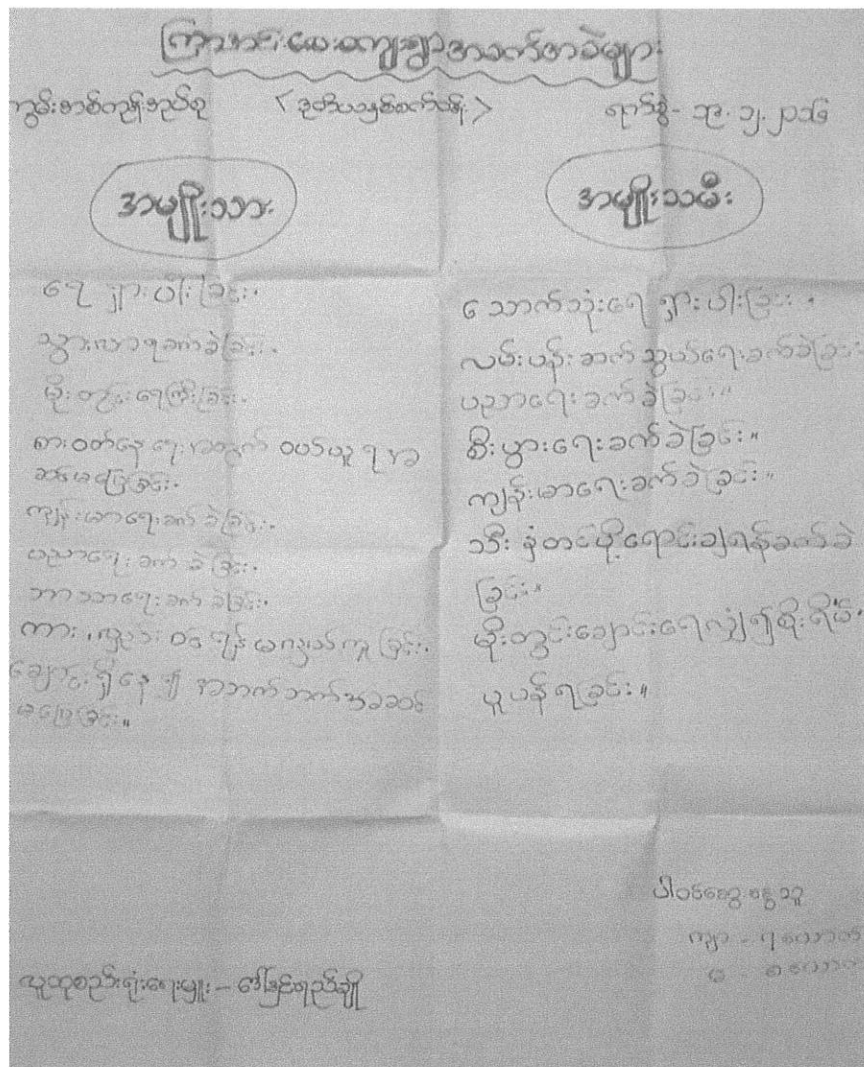 ကြားအင်းလေးကျေးရွာအခက်အခဲများ
ကွမ်းခြံကုန်းအုပ်စု <ဒုတိယနှစ်စက်ဝန်း> ရက်စွဲ - ၁၉.၁၂.၂၀၁၆
အမျိုးသား
ရေရှားပါးခြင်း.
သွားလာရခက်ခဲခြင်း.
မိုးတွင်းရေကြီးခြင်း.
စားဝတ်နေရေးအတွက် ဝယ်ယူရာ
အဆင်မပြေခြင်း.
ကျန်းမာရေးခက်ခဲခြင်း.
ပညာရေးခက်ခဲခြင်း.
ဘာသာရေးခက်ခဲခြင်း.
ကား၊ လှည်း ဝင်ရန် မလွယ်ကူခြင်း.
ချောင်းရှိနေ၍ အဘက်ဘက်အဆင်
မပြေခြင်း။
အမျိုးသမီး
သောက်သုံးရေ ရှားပါးခြင်း.
လမ်းပန်းဆက်သွယ်ရေးခက်ခဲခြင်း
ပညာရေးခက်ခဲခြင်း။
စီးပွားရေးခက်ခဲခြင်း။
ကျန်းမာရေးခက်ခဲခြင်း။
သီးနှံတင်ပို့ရောင်းချရန်ခက်ခဲ
ခြင်း။
မိုးတွင်းချောင်းရေလျှံ၍စိုးရိမ်
ပူပန်ရခြင်း။
ပါဝင်ဆွေးနွေးသူ
ကျား - ၇ ယောက်
မ - ၈ ယောက်
လူထုစည်းရုံးရေးမှူး - ဒေါ်ခင်ရည်ချို